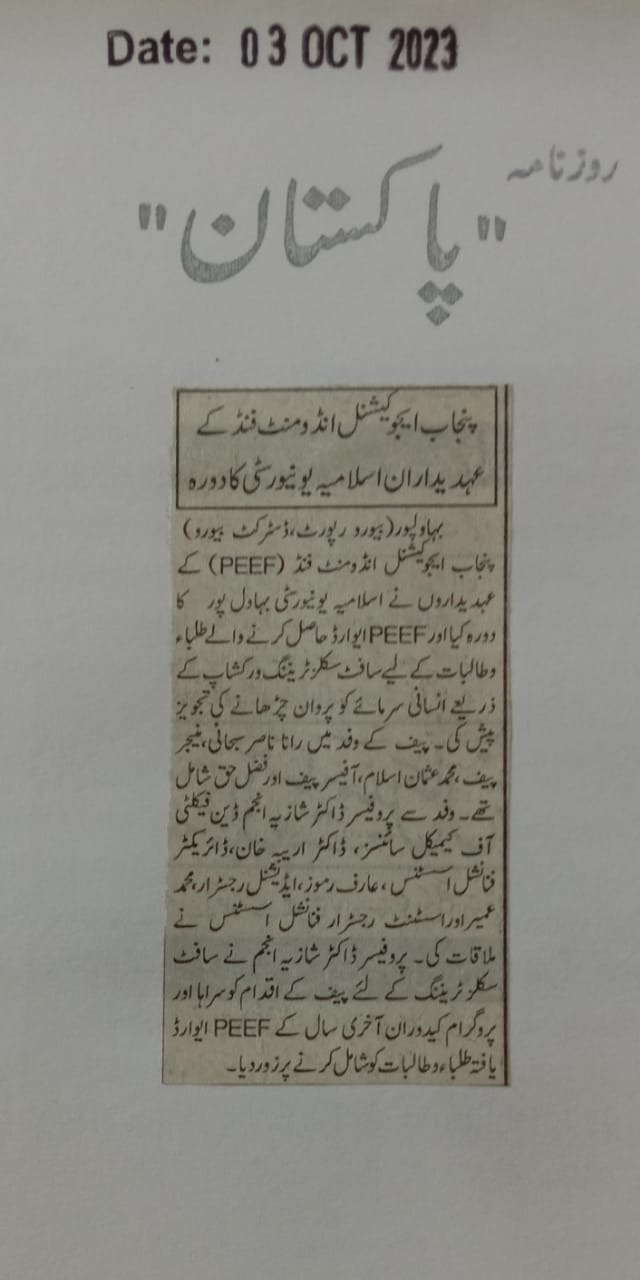 Date: 03 OCT 2023
روزنامہ
"پاکستان"
پنجاب ایجوکیشنل انڈومنٹ فنڈ کے
عہدیداران اسلامیہ یونیورسٹی کا دورہ
بہاولپور(بیورو رپورٹ،ڈسٹرکٹ بیورو)
پنجاب ایجوکیشنل انڈومنٹ فنڈ (PEEF) کے
عہدیداروں نے اسلامیہ یونیورسٹی بہاول پور کا
دورہ کیا اور PEEF ایوارڈ حاصل کرنے والے طلباء
وطالبات کے لیے سافٹ سکلز ٹریننگ ورکشاپ کے
ذریعے انسانی سرمائے کو پروان چڑھانے کی تجویز
پیش کی۔ پیف کے وفد میں رانا ناصر سبحانی،منیجر
پیف،محمد عثمان اسلام،آفیسر پیف اور فضل حق شامل
تھے۔ وفد سے پروفیسر ڈاکٹر شازیہ انجم ڈین فیکلٹی
آف کیمیکل سائنسز، ڈاکٹر اریبہ خان،ڈائریکٹر
فنانشل اسسٹنس، عارف رموز،ایڈیشنل رجسٹرار،محمد
عمیر اور اسسٹنٹ رجسٹرار فنانشل اسسٹنس نے
ملاقات کی۔ پروفیسر ڈاکٹر شازیہ انجم نے سافٹ
سکلز ٹریننگ کے لئے پیف کے اقدام کو سراہا اور
پروگرام کیدوران آخری سال کے PEEF ایوارڈ
یافتہ طلباء وطالبات کو شامل کرنے پر زور دیا۔